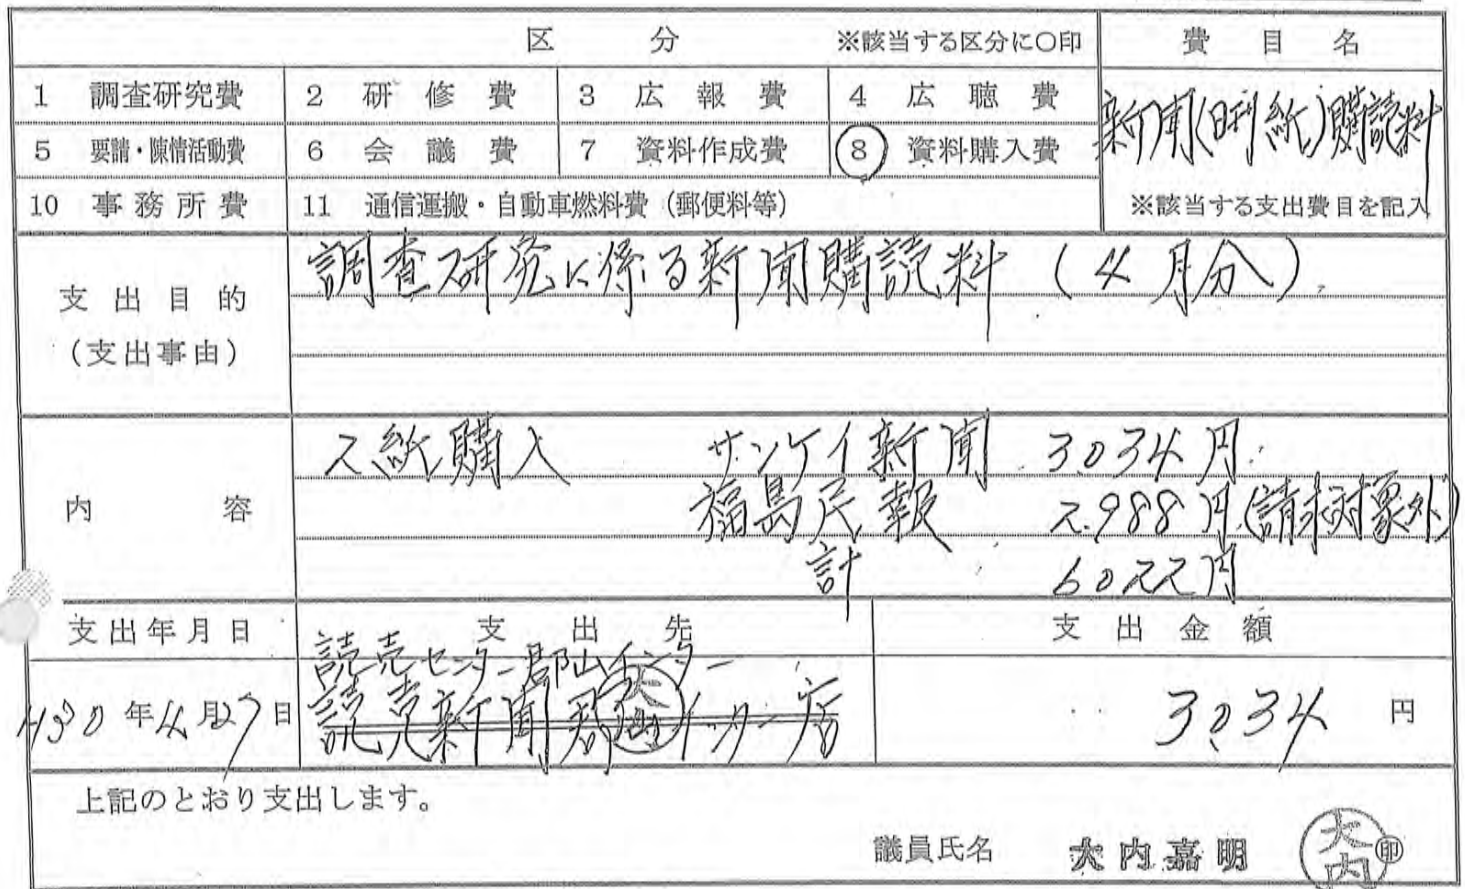 区分 ※該当する区分に〇印 費目名
1 調査研究費 2 研修費 3 広報費 4 広聴費
新聞(日刊紙)購読料
5 要請・陳情活動費 6 会議費 7 資料作成費 8 資料購入費
10 事務所費 11 通信運搬・自動車燃料費(郵便料等)
※該当する支出費目を記入
支出目的
(支出事由)
調査研究に係る新聞購読料(4月分)
内容
2紙購入 サンケイ新聞 3,034円
福島民報 2,988円(請求対象外)
計 6,022円
支出年月日 支出先 支出金額
読売センター郡山インター
H30年4月27日 読売新聞郡山インター店 3,034円
大内
上記のとおり支出します。
議員氏名 大内嘉明 印
大内